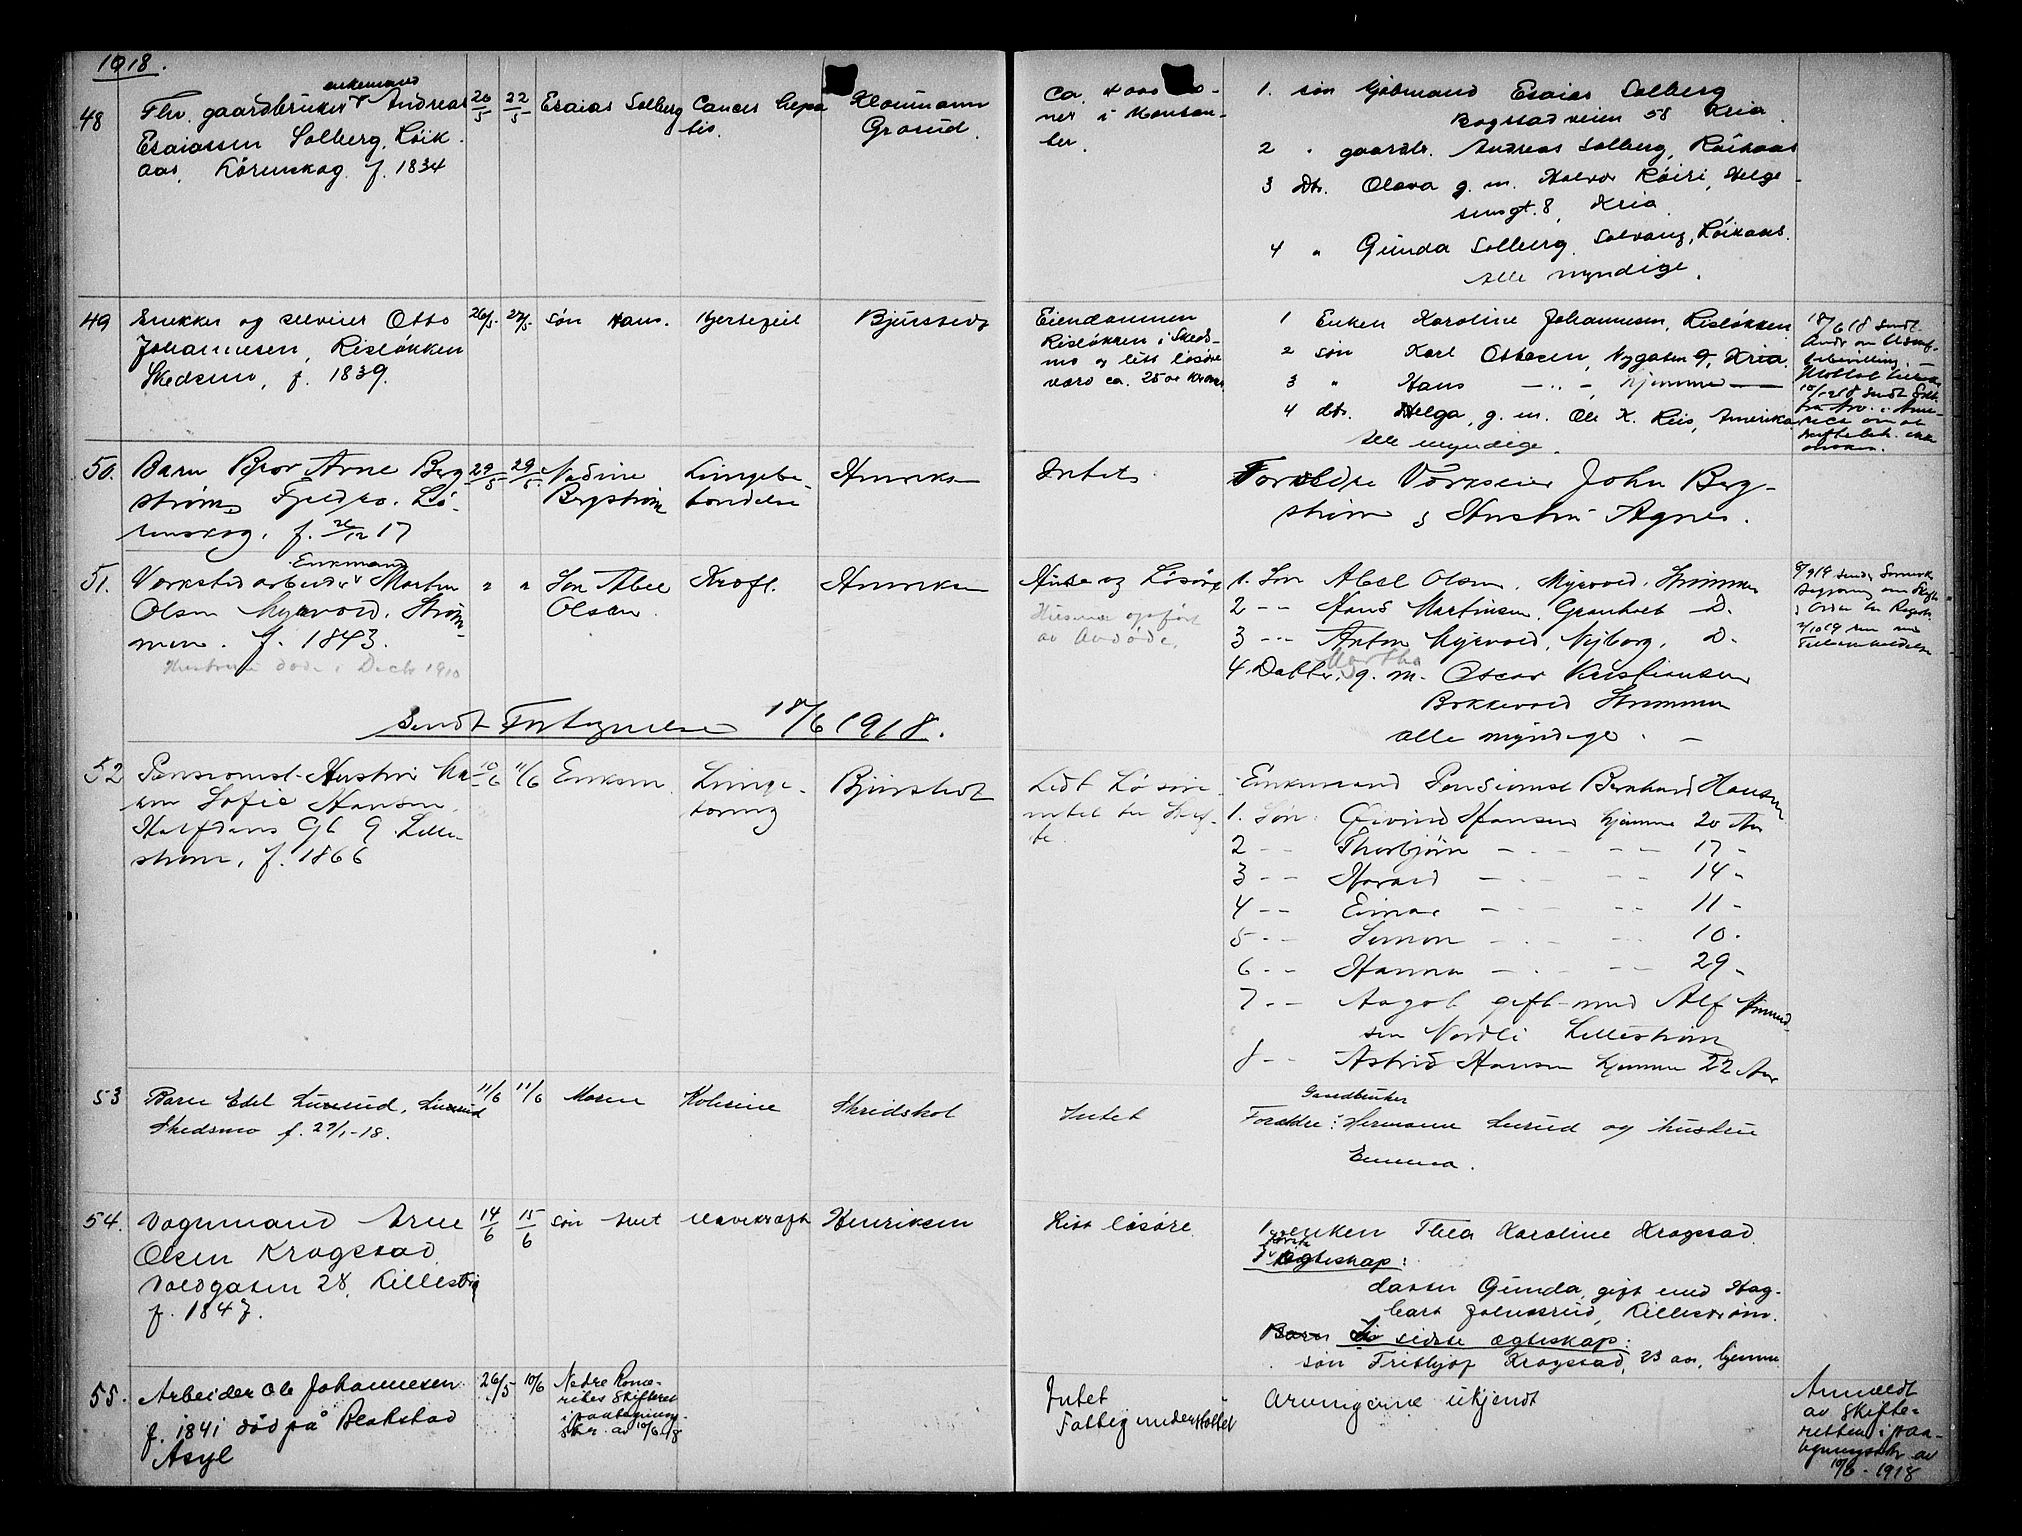 1918.
48
enkemand
Fhv. gaardbruker Andreas
Esaiassen Solberg, Løik
aas, Lørenskog f. 1834
26/5
22/5
Esaias Solberg
Cancer hepa
tis.
Klaumann
Grorud.
Ca. 4000 kro-
ner i kontan-
ter.
1. søn Gjørmand Esaias Solberg
Bogstadveien 58 Kria
2 " gaardbr. Andreas Solberg, Løikaas
3 Dtr. Olava g. m. Halvor Røise, Helge-
sensgt. 8, Kria.
4 " Gunda Solberg, Solvang, Løikaas.
Alle myndige.
49
Snekker og selveier Otto
Johannesen, Risløkken
Skedsmo, f. 1839.
26/5
27/5
Søn Hans.
Hjertefeil
Bjürstedt
Eiendommen
Risløkken i Skeds-
mo og litt løsøre
værd ca. 2500 kroner
1 Enken Karoline Johannesen, Risløkken
2 søn Karl Ottesen, Nygaten 9, Kria.
3 " Hans — " — hjemme
4 dtr. Helga, g. m. Ole K. Reis, Amerika
alle myndige.
18/6 18 sendt
50.
Barn Bror Arne Berg
strøm, Fjeldbo. Lø-
renskog, f. 26/12 17
29/5
29/5
Nadine
Bergstrøm
Lungebe-
tændelse
Henriksen
Intet
Forældre Værkseier John Berg-
strøm og Hustru Agnes.
51.
Enkemand
Værkstedarbeider Martin
Olsen Myrvold, Strøm-
men. f. 1843.
Hustruen døde i Decbr 1910
" "
Søn Abel
Olsen.
Kræft.
Henriksen
Huse og Løsøre
Husene opført
av Avdøde.
1. Søn Abel Olsen, Myrvold, Strømmen
2 -- Hans Martinsen, Granholt d.
3 -- Anton Myrvold, Nyborg, d.
Martha
4 Datter, g. m. Oscar Kristiansen
Bakkevold Strømmen
alle myndige. —
Sendt Fortegnelse 18/6 1918.
52
Pensionist-Hustru Ka-
ren Sofie Hansen.
Halfdans Gt 9 Lille-
strøm, f. 1866
10/6
11/6
Enkem.
Lunge-
tæring
Bjürstedt
Lidt Løsøre
intet til Skif-
te.
Enkemand Pensionist Bernhard Hansen
1. Søn: Eivind Hansen hjemme 20 Aar
2 -- Thorbjørn — — 17 -
3 -- Harald — — 14 -
4 -- Einar — — 11 -
5 -- Simon — — 10 -
6 -- Hanna — — 29 -
7 -- Aagot gift med Alf Amund-
sen Nordli Lillestrøm
8 -- Astrid Hansen hjemme 22 Aar
53
Barn Edel Lurud, Lurud
Skedsmo f. 27/1-18.
11/6
11/6
Moren
Kolerine
Skridshol
Intet
Gaardbruker
Forældre: Hermann Lurud og hustru
Emma.
54.
Vognmand Arne
Olsen Kragstad
Voldgaten 28, Lillestrøm
f. 1847.
14/6
15/6
søn
Mavekræft
Henriksen
Litt løsøre.
1. enken Thea Karoline Kragstad.
I første ægteskap:
datter Gunda, gift med Hag-
bart Johnsrud, Lillestrøm.
Barn i sidste ægteskap:
søn Fritjof Kragstad, 23 aar, hjemme
55.
Arbeider Ole Johannesen
f. 1841 død på Blakstad
Asyl
26/5
10/6
Nedre Rome-
rikes Skifteret
i paategning-
skr. av 10/6-18
Intet
Fattigunderstøttet
Arvingerne ukjendt
Anmeldt
av Skifte-
retten i paa-
tegningsskr. av
10/6-1918